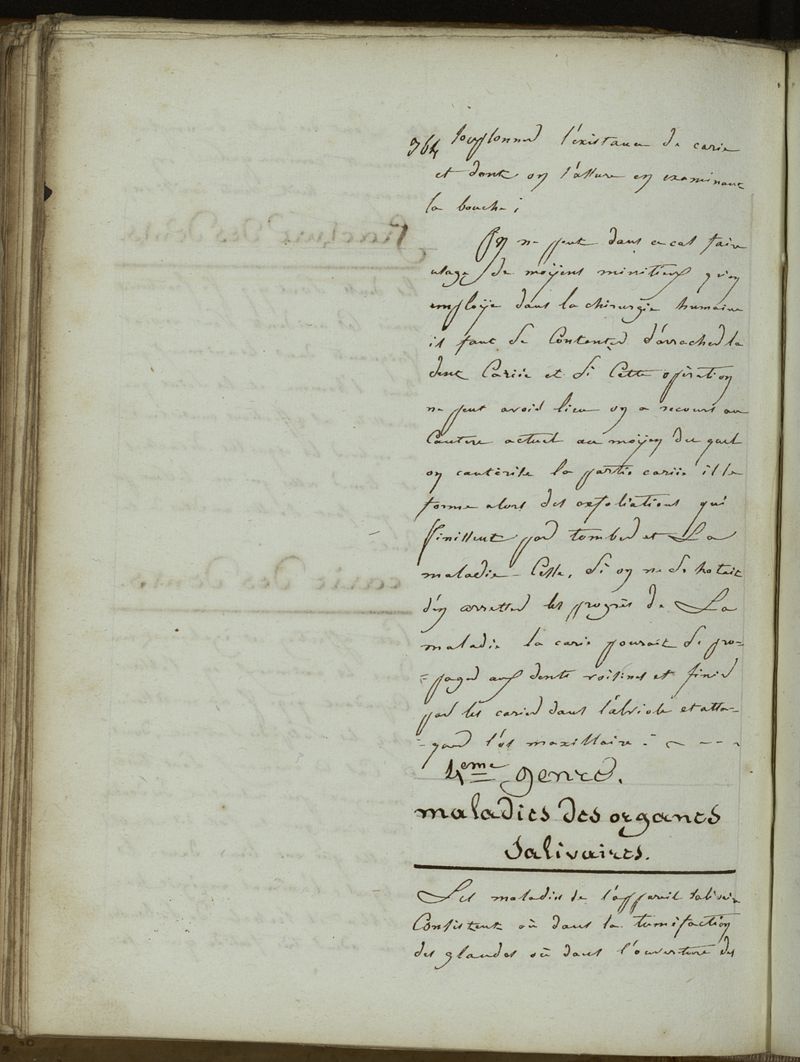 364 soupsonner l'éxistance de carie
et dont on s'assure en examinant
la bouche;
On ne peut dans ce cas faire
usage de moyens minitieux qu'on
employe dans la chirurgie humaine
il faut se Contenter d'arracher la
dent Cariée et si Cette opération
ne peut avoir lieu on a recours au
Cautere actuel au moyen du quel
on cautérise la partie cariée il se
forme alors des exfoliations qui
finissent par tomber et La
maladie Cesse, si on ne se hatait
d'en arretter les progrès de La
maladie la carie pourait se pro-
=pager aux dents voisines et finir
par les carier dans l'alvéole et atta-
=quer l'os maxillaire. -
4eme genre.
maladies des organes
salivaires.
Les maladies de l'appareil salivaire
Consistent où dans la tumifaction
des glandes où dans l'ouverture des
fracture des dents.
carie des dents.